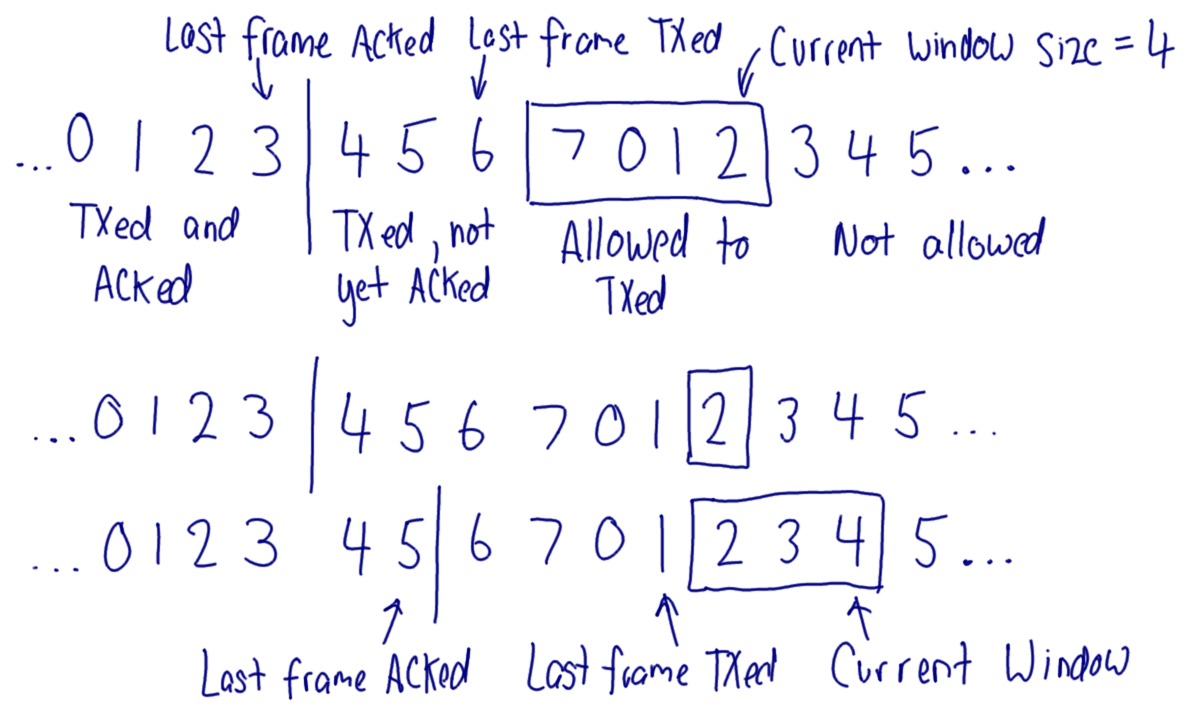 Last frame Acked Last frame TXed Current window size = 4
...0 1 2 3 4 5 6 7 0 1 2 3 4 5...
TXed and TXed, not Allowed to Not allowed
ACKed yet ACKed TXed
...0 1 2 3 4 5 6 7 0 1 2 3 4 5...
...0 1 2 3 4 5 6 7 0 1 2 3 4 5...
Last frame ACKed Last frame TXed Current Window